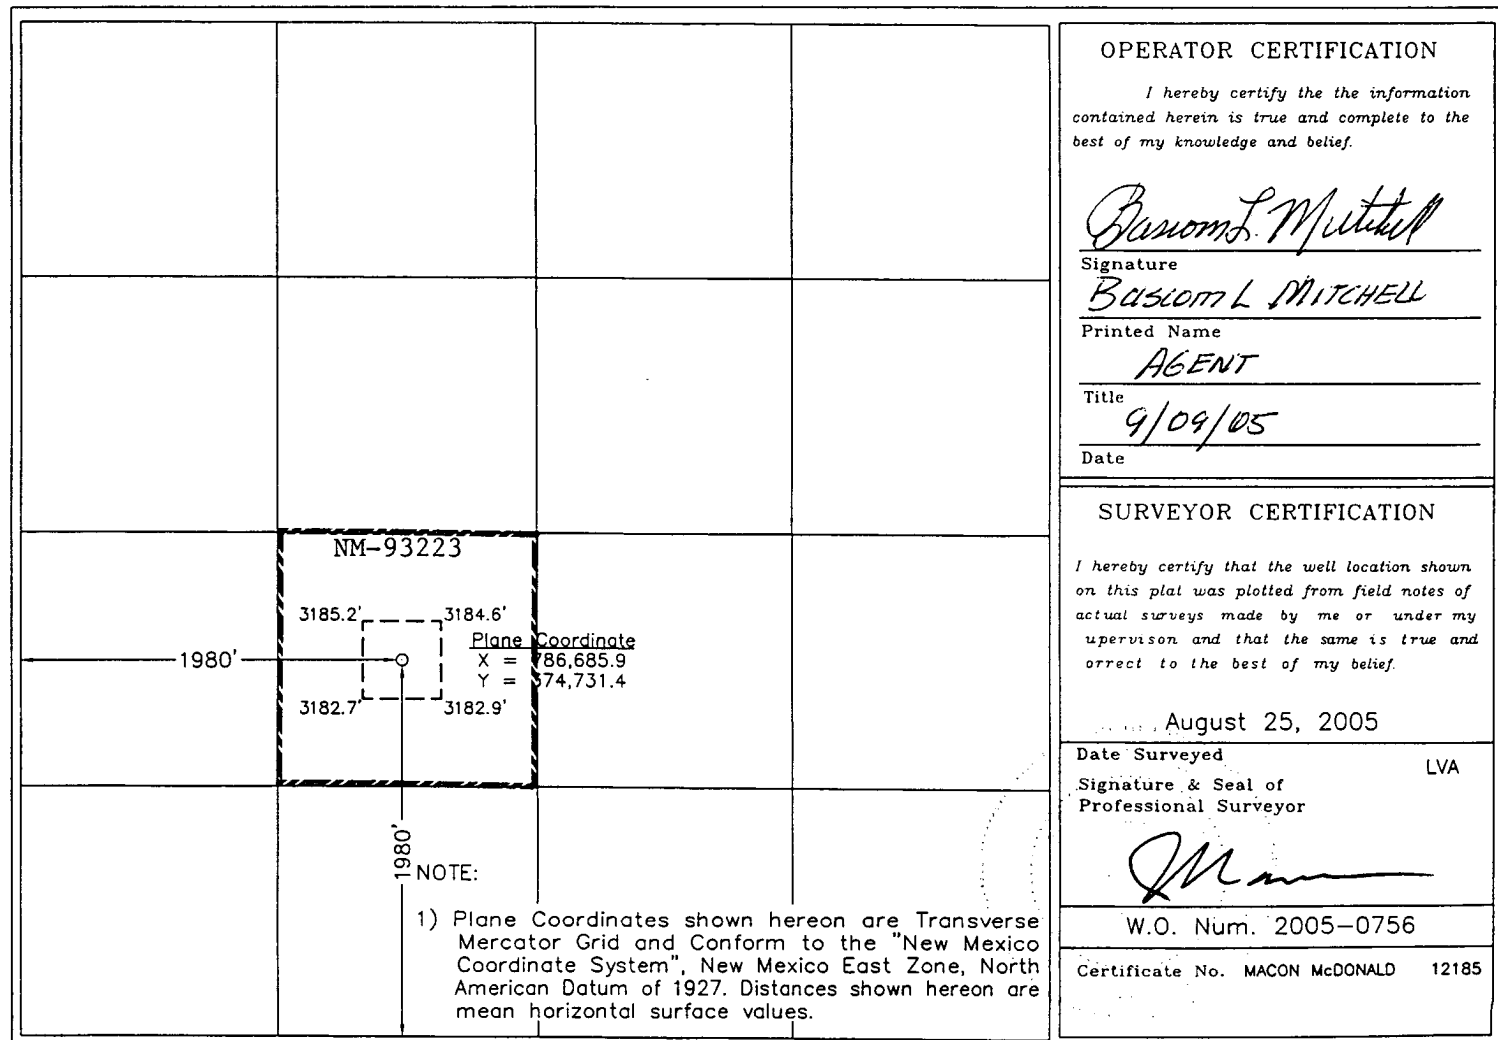 NM-93223
3185.2' 3184.6'
Plane Coordinate
X = 786,685.9
Y = 74,731.4
1980'
3182.7' 3182.9'
1980'
NOTE:
1) Plane Coordinates shown hereon are Transverse
Mercator Grid and Conform to the "New Mexico
Coordinate System", New Mexico East Zone, North
American Datum of 1927. Distances shown hereon are
mean horizontal surface values.
OPERATOR CERTIFICATION
I hereby certify the the information
contained herein is true and complete to the
best of my knowledge and belief.
Bascom L. Mitchell
Signature
Bascom L MITCHELL
Printed Name
AGENT
Title
9/09/05
Date
SURVEYOR CERTIFICATION
I hereby certify that the well location shown
on this plat was plotted from field notes of
actual surveys made by me or under my
upervison and that the same is true and
orrect to the best of my belief.
August 25, 2005
Date Surveyed
LVA
Signature & Seal of
Professional Surveyor
W.O. Num. 2005-0756
Certificate No. MACON McDONALD 12185